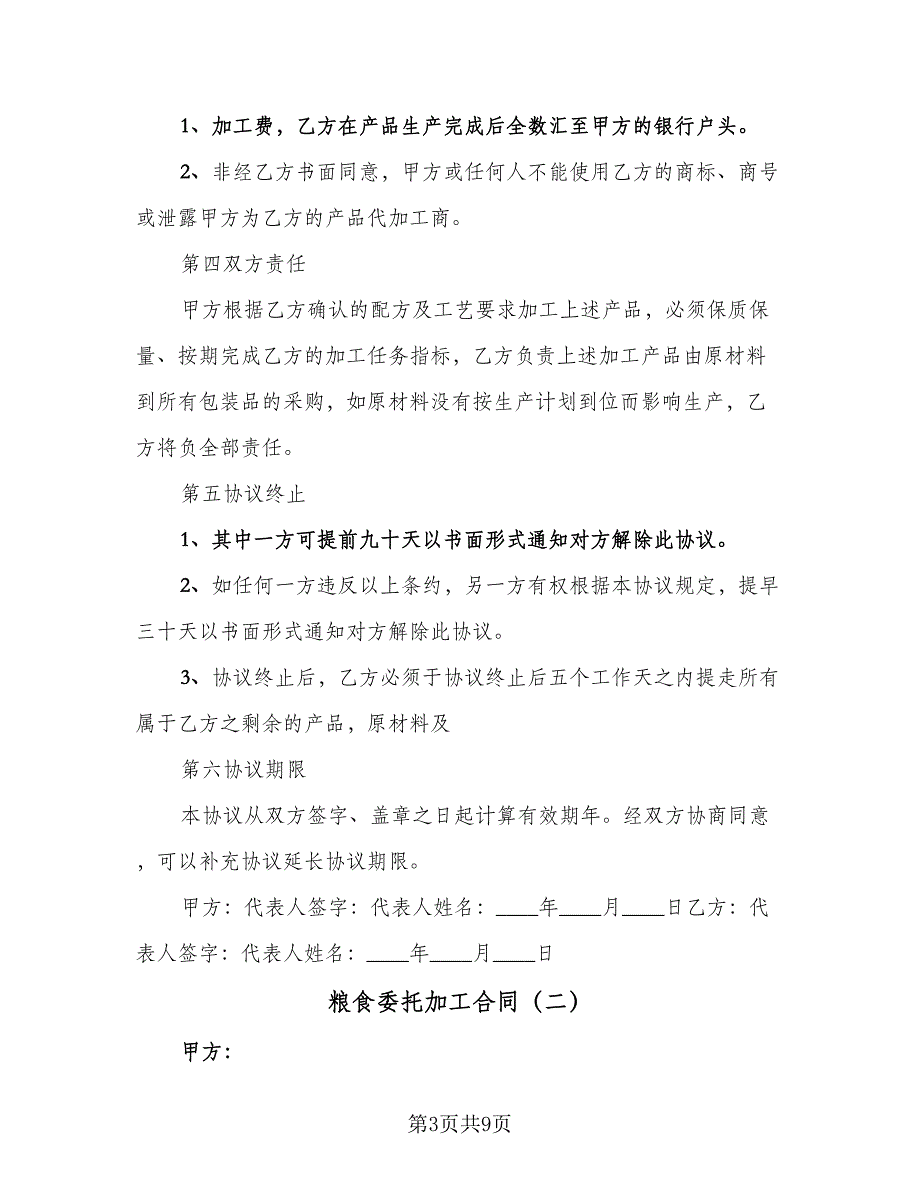 1、加工费，乙方在产品生产完成后全数汇至甲方的银行户头。
2、非经乙方书面同意，甲方或任何人不能使用乙方的商标、商号
或泄露甲方为乙方的产品代加工商。
第四双方责任
甲方根据乙方确认的配方及工艺要求加工上述产品，必须保质保
量、按期完成乙方的加工任务指标，乙方负责上述加工产品由原材料
到所有包装品的采购，如原材料没有按生产计划到位而影响生产，乙
方将负全部责任。
第五协议终止
1、其中一方可提前九十天以书面形式通知对方解除此协议。
2、如任何一方违反以上条约，另一方有权根据本协议规定，提早
三十天以书面形式通知对方解除此协议。
3、协议终止后，乙方必须于协议终止后五个工作天之内提走所有
属于乙方之剩余的产品，原材料及
第六协议期限
本协议从双方签字、盖章之日起计算有效期年。经双方协商同意
，可以补充协议延长协议期限。
甲方：代表人签字：代表人姓名：____年____月____日乙方：代
表人签字：代表人姓名：____年____月____日
粮食委托加工合同（二）
甲方：
第3页共9页